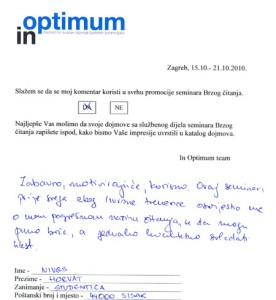 in optimum
Zagreb, 15.10.- 21.10.2010.
Slažem se da se moj komentar koristi u svrhu promocije seminara Brzog čitanja.
DA NE
Najljepše Vas molimo da svoje dojmove sa službenog dijela seminara Brzog
čitanja zapišete ispod, kako bismo Vaše impresije uvrstili u katalog dojmova.
In Optimum team
Zabavno, motivirajuće, korisno. Ovaj seminar
prije svega zbog trenutne osvijestio me
o mom pogrešnom načinu čitanja, te da mogu
puno brže, a jednako kvalitetno svladati
tekst.
Ime - NIVES
Prezime - HORVAT
Zanimanje - STUDENTICA
Poštanski broj i mjesto - 44000 SISAK